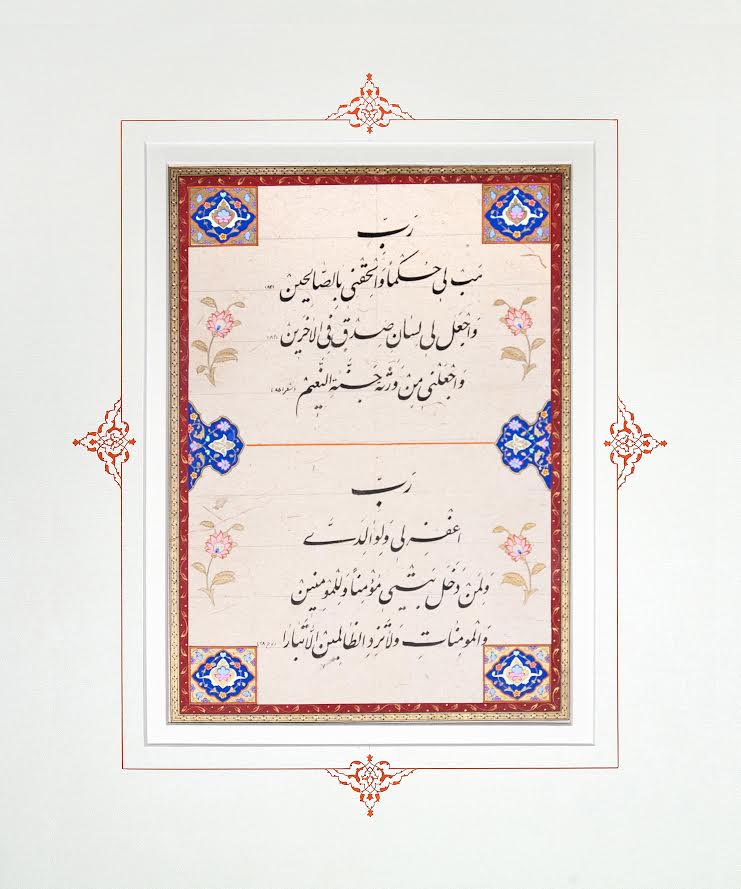 رَبّ
هَبْ لی حُکماً وَاَلْحِقْنی بِالصّالِحین (۸۳)
وَاجْعَل لی لِسانَ صِدْقٍ فِی الاخَرینَ (۸۴)
وَاجْعَلنی مِنْ وَرَثَةِ جَنَّةِ النَّعیم (شعرا ۸۵)
رَبّ
اغْفِرلی وَلِوالِدَیَّ
وَلِمَنْ دَخَلَ بَیْتِیَ مُؤْمِناً وَلِلْمُومِنینَ
وَالْمُومِناتِ وَلاتَزِدِ الظّالِمینَ اِلاّتَبارا (نوح ۲۸)